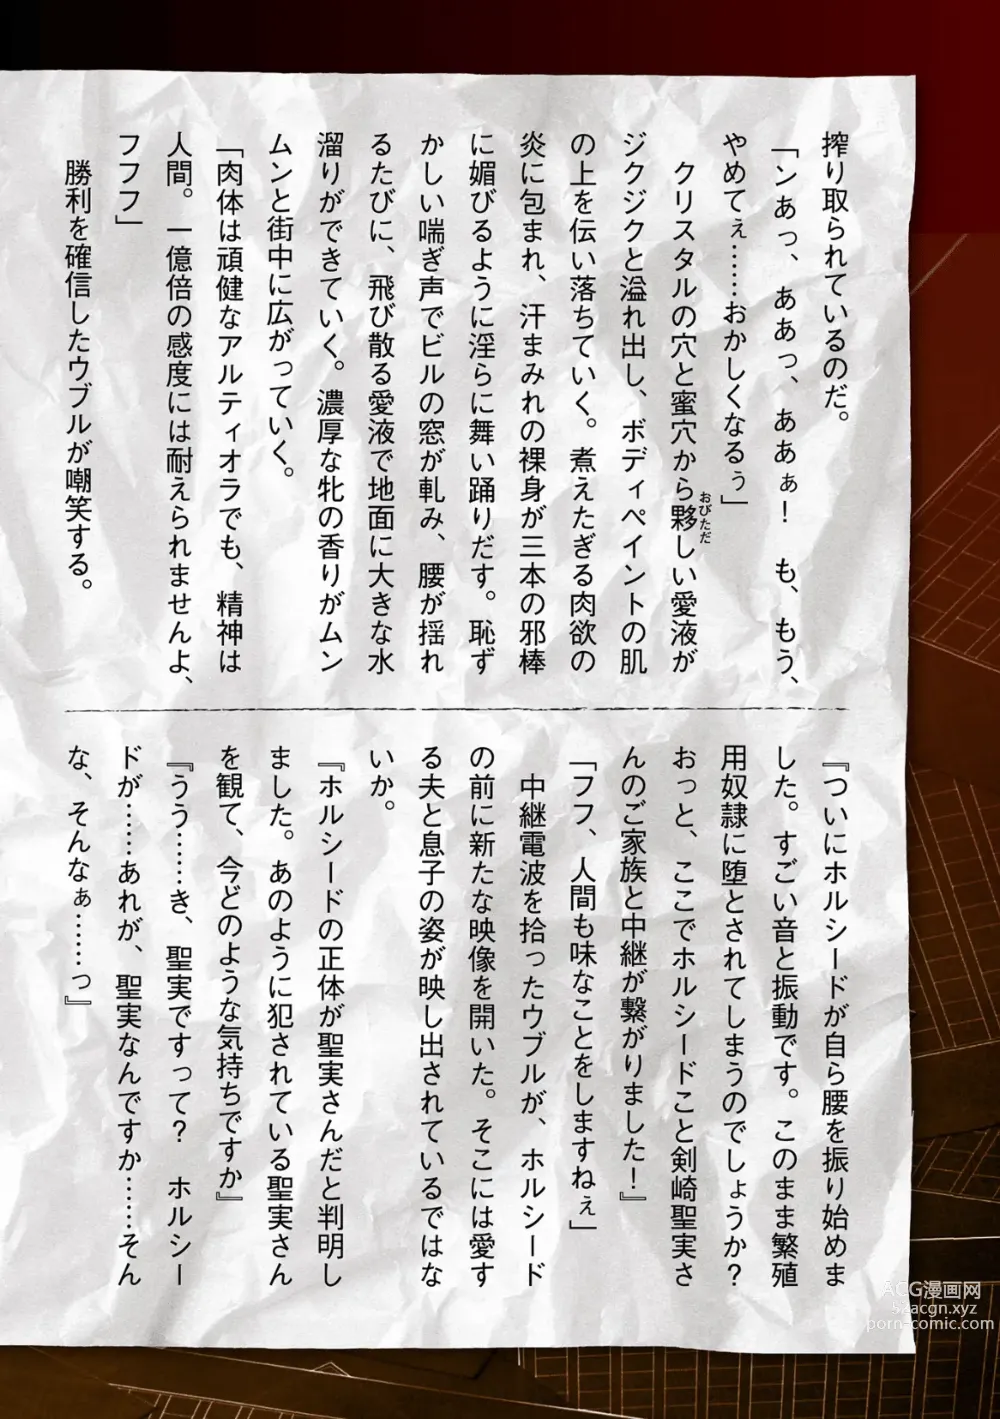 搾り取られているのだ。
「ンあっ、ああっ、ああぁ！　も、もう、
やめてぇ……おかしくなるぅ」
　クリスタルの穴と蜜穴から夥しい愛液が
おびただ
ジクジクと溢れ出し、ボディペイントの肌
の上を伝い落ちていく。煮えたぎる肉欲の
炎に包まれ、汗まみれの裸身が三本の邪棒
に媚びるように淫らに舞い踊りだす。恥ず
かしい喘ぎ声でビルの窓が軋み、腰が揺れ
るたびに、飛び散る愛液で地面に大きな水
溜りができていく。濃厚な牝の香りがムン
ムンと街中に広がっていく。
「肉体は頑健なアルティオラでも、精神は
人間。一億倍の感度には耐えられませんよ、
フフフ」
　勝利を確信したウブルが嘲笑する。
『ついにホルシードが自ら腰を振り始めま
した。すごい音と振動です。このまま繁殖
用奴隷に堕とされてしまうのでしょうか？
おっと、ここでホルシードこと剣崎聖実さ
んのご家族と中継が繋がりました！』
「フフ、人間も味なことをしますねぇ」
　中継電波を拾ったウブルが、ホルシード
の前に新たな映像を開いた。そこには愛す
る夫と息子の姿が映し出されているではな
いか。
『ホルシードの正体が聖実さんだと判明し
ました。あのように犯されている聖実さん
を観て、今どのような気持ちですか』
『うう……き、聖実ですって？　ホルシー
ドが……あれが、聖実なんですか……そん
な、そんなぁ……っ』
ACG漫画网
52acgn.xyz
porn-comic.com